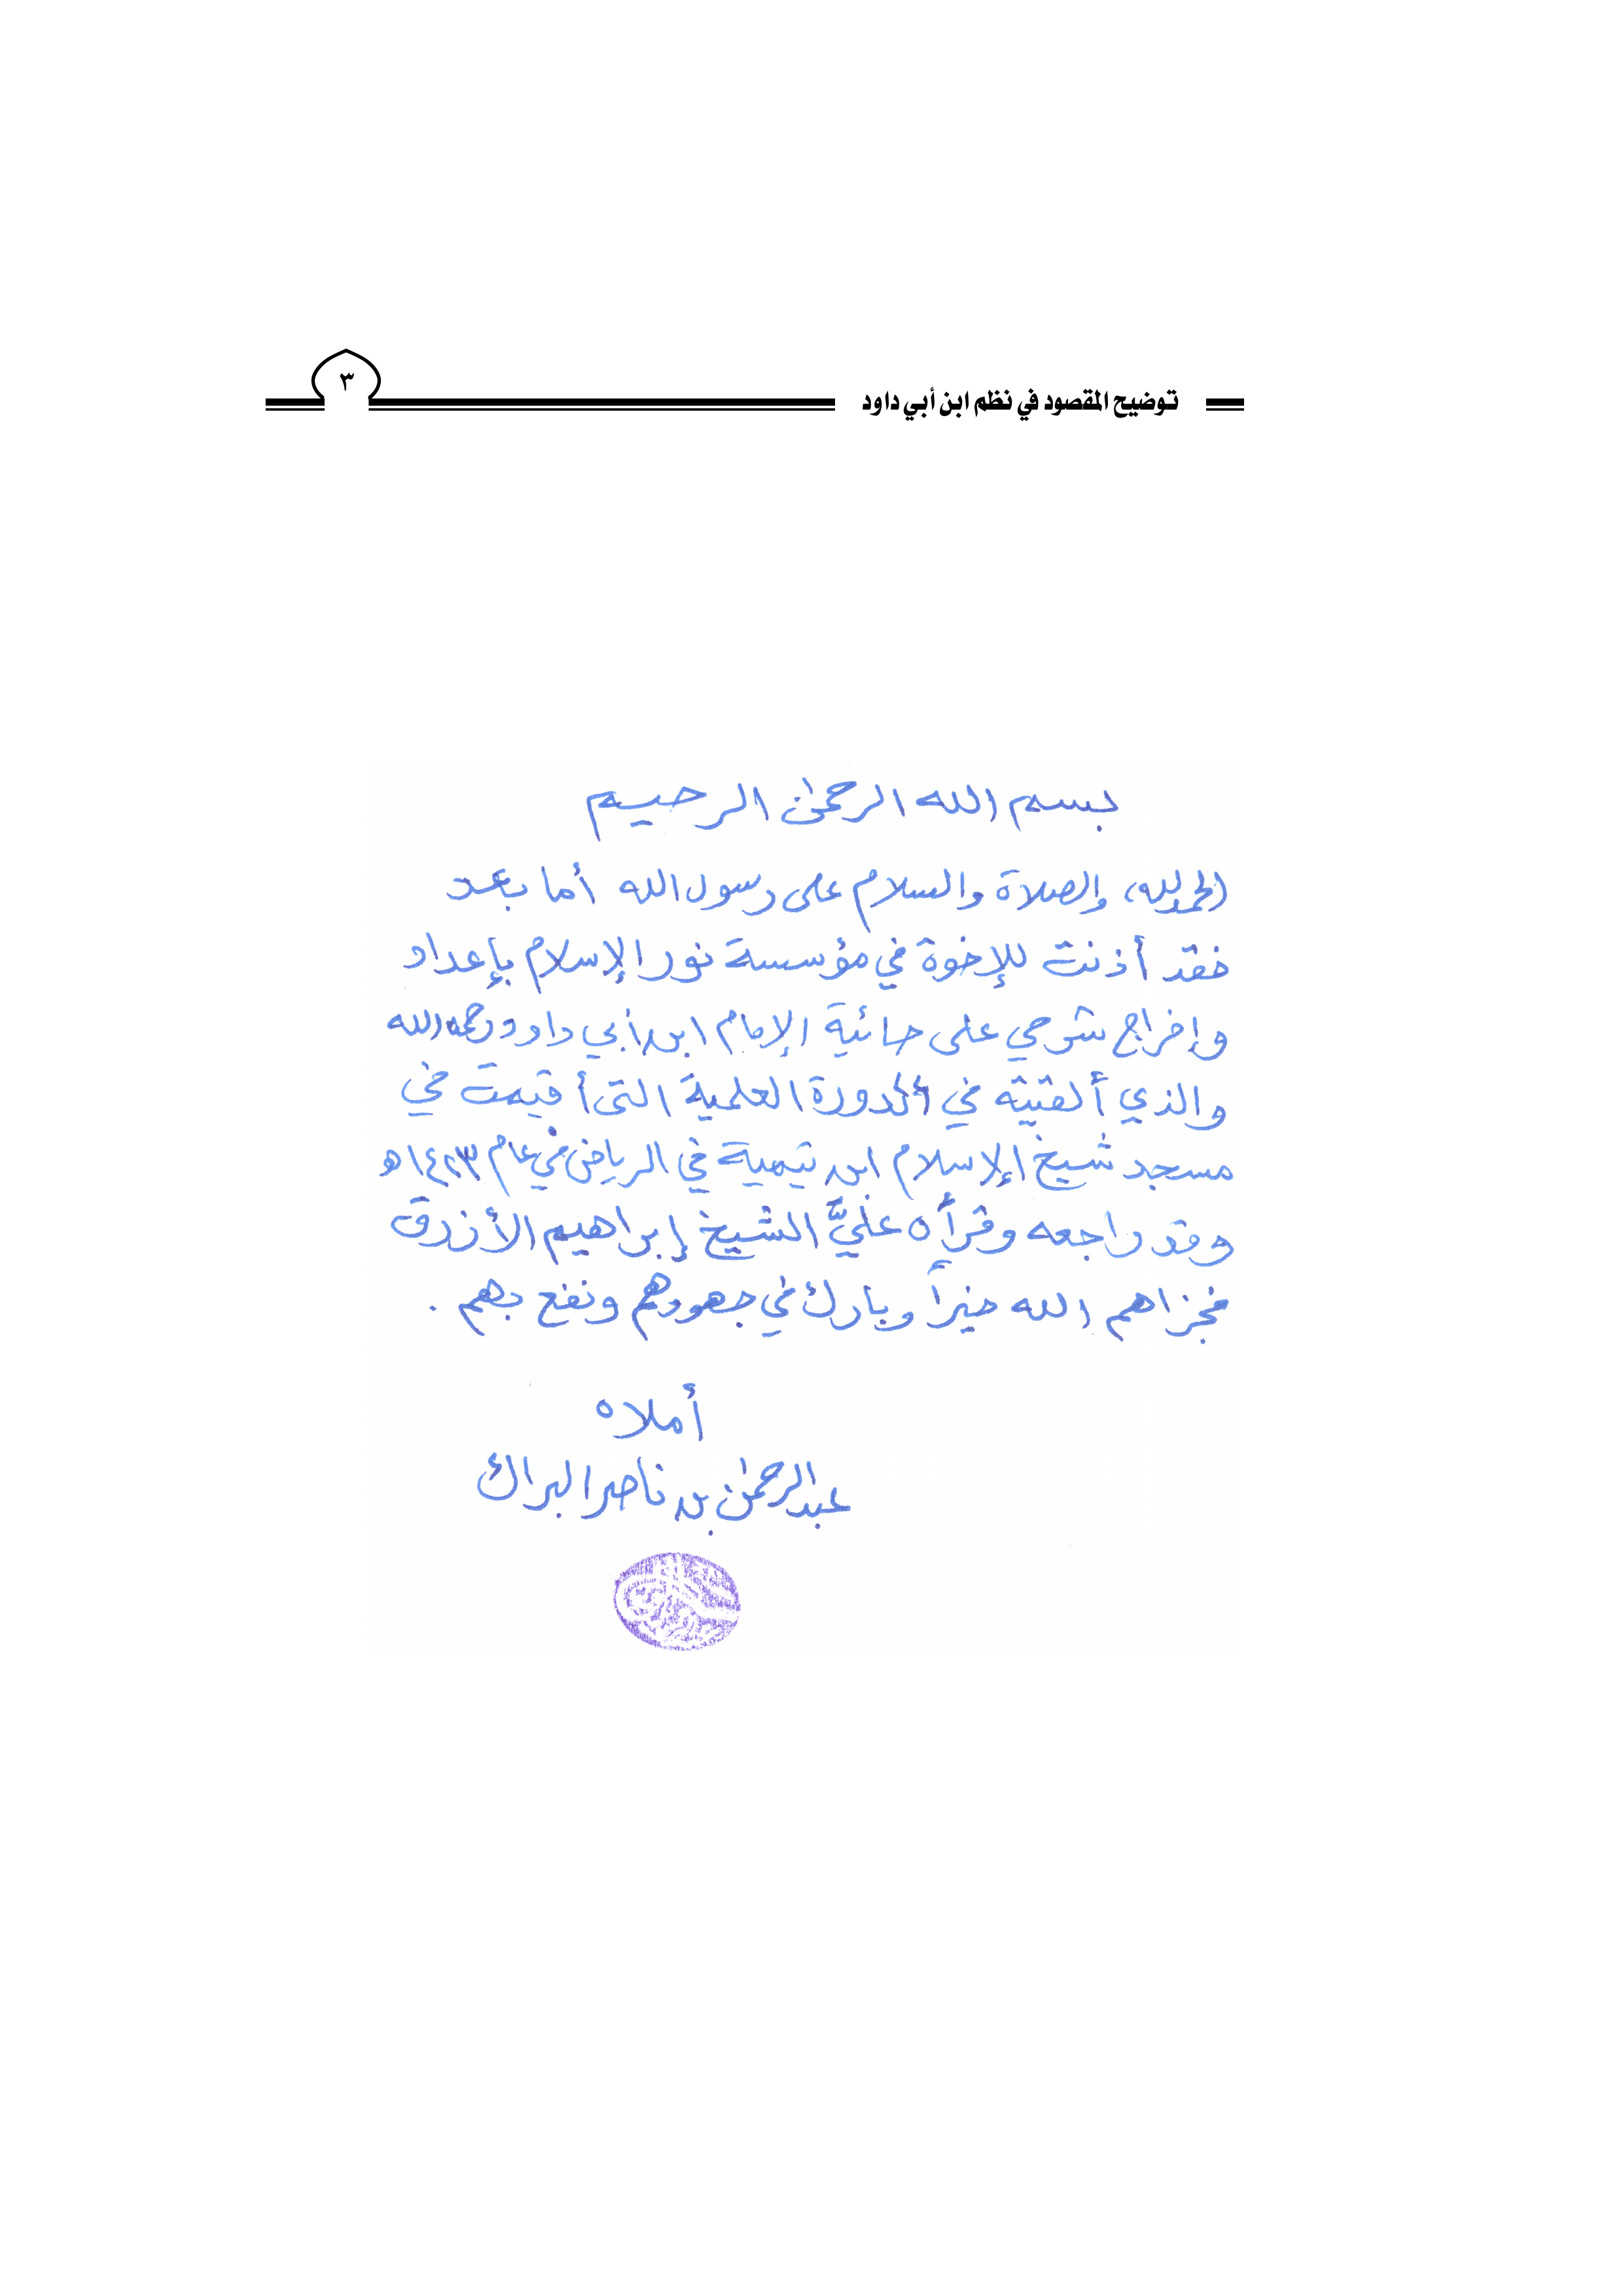 توضيح المقصود في نظم ابن أبي داود
٣
بسم الله الرحمن الرحيم
الحمد لله، والصلاة والسلام على رسول الله أما بعد
فقد أذنت للإخوة في مؤسسة نور الإسلام بإعداد
وإخراج شرحي على حائية الإمام ابن أبي داود رحمه الله
والذي ألقيته في الدورة العلمية التي أقيمت في
مسجد شيخ الإسلام ابن تيمية في الرياض في عام ١٤٢٣ه
وقد راجعه وقرأه عليَّ الشيخ إبراهيم الأزرق
فجزاهم الله خيراً وبارك في جهودهم ونفع بهم .
أملاه
عبد الرحمن بن ناصر البراك